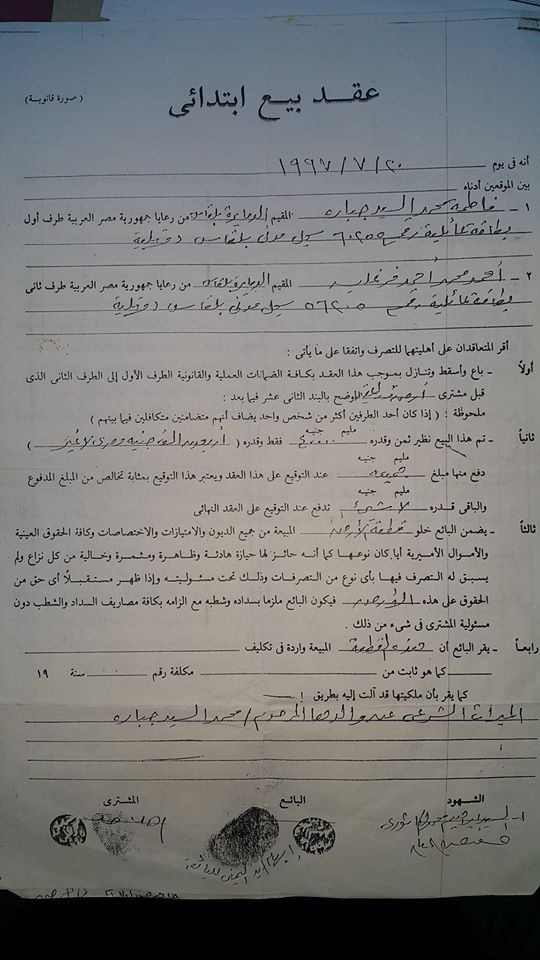 عقد بيع ابتدائى
( صورة قانونية )
أنه فى يوم ٢٠ / ٧ / ١٩٩٧
بين الموقعين أدناه
١ – فاطمة محمد السيد جباره المقيم من رعايا جمهورية مصر العربية طرف أول
بطاقة عائلية رقم ٦٠٢٥٥ سجل مدنى بلقاس دقهلية
٢ – أحمد محمد أحمد المقيم من رعايا جمهورية مصر العربية طرف ثانى
بطاقة عائلية رقم ٥٦٢٠٥ سجل مدنى بلقاس دقهلية
أقر المتعاقدان على أهليتهما للتصرف واتفقا على ما يأتى :
أولاً – باع وأسقط وتنازل بموجب هذا العقد بكافة الضمانات العملية والقانونية الطرف الأول إلى الطرف الثانى الذى
قبل مشترى الموضح بالبند الثانى عشر فيما بعد :
ملحوظة : ( إذا كان أحد الطرفين أكثر من شخص واحد يضاف أنهم متضامنين متكافلين فيما بينهم )
مليم جنيه
ثانياً – تم هذا البيع نظير ثمن وقدره فقط وقدره ( اربعون الف جنيه مصرى لاغير )
مليم جنيه
دفع منها مبلغ عند التوقيع على هذا العقد ويعتبر هذا التوقيع بمثابة تخالص من المبلغ المدفوع
مليم جنيه
والباقى قدره لا شىء تدفع عند التوقيع على العقد النهائى
ثالثاً – يضمن البائع خلو قطعة الأرض المبيعة من جميع الديون والامتيازات والاختصاصات وكافة الحقوق العينية
والأموال الأميرية أيا كان نوعها كما أنه حائز لها حيازة هادئة وظاهرة ومثمرة وخالية من كل نزاع ولم
يسبق له التصرف فيها بأى نوع من التصرفات وذلك تحت مسئوليته وإذا ظهر مستقبلاً أى حق من
الحقوق على هذه الأرض فيكون البائع ملزما بسداده وشطبه مع الزامه بكافة مصاريف السداد والشطب دون
مسئولية المشترى فى شىء من ذلك .
رابعاً – يقر البائع أن هذه القطعة المبيعة واردة فى تكليف
كما هو ثابت من مكلفة رقم سنة ١٩
كما يقر بأن ملكيتها قد آلت إليه بطريق !
الميراث الشرعى عن والدها المرحوم / محمد السيد جباره
الشهود البائع المشترى